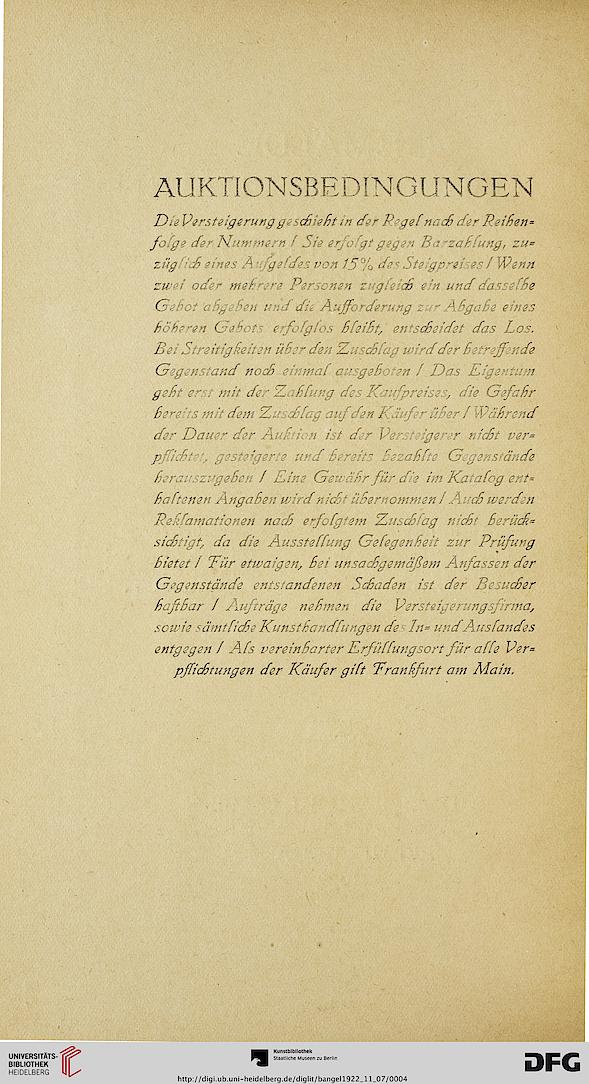 AUKTIONSBEDINGUNGEN
Die Versteigerung geschieht in der Regel nach der Reihen=
folge der Nummern / Sie erfolgt gegen Barzahlung, zu=
züglich eines Aufgeldes von 15% des Steigpreises / Wenn
zwei oder mehrere Personen zugleich ein und dasselbe
Gebot abgeben und die Aufforderung zur Abgabe eines
höheren Gebots erfolglos bleibt, entscheidet das Los.
Bei Streitigkeiten über den Zuschlag wird der betreffende
Gegenstand noch einmal ausgeboten / Das Eigentum
geht erst mit der Zahlung des Kaufpreises, die Gefahr
bereits mit dem Zuschlag auf den Käufer über / Während
der Dauer der Auktion ist der Versteigerer nicht ver=
pflichtet, gesteigerte und bereits bezahlte Gegenstände
herauszugeben / Eine Gewähr für die im Katalog ent=
haltenen Angaben wird nicht übernommen / Auch werden
Reklamationen nach erfolgtem Zuschlag nicht berück=
sichtigt, da die Ausstellung Gelegenheit zur Prüfung
bietet / Für etwaigen, bei unsachgemäßem Anfassen der
Gegenstände entstandenen Schaden ist der Besucher
haftbar / Aufträge nehmen die Versteigerungsfirma,
sowie sämtliche Kunsthandlungen des In= und Auslandes
entgegen / Als vereinbarter Erfüllungsort für alle Ver=
pflichtungen der Käufer gilt Frankfurt am Main.
UNIVERSITÄTS-
BIBLIOTHEK
HEIDELBERG
Kunstbibliothek
Staatliche Museen zu Berlin
DFG
http://digi.ub.uni-heidelberg.de/diglit/bangel1922_11_07/0004